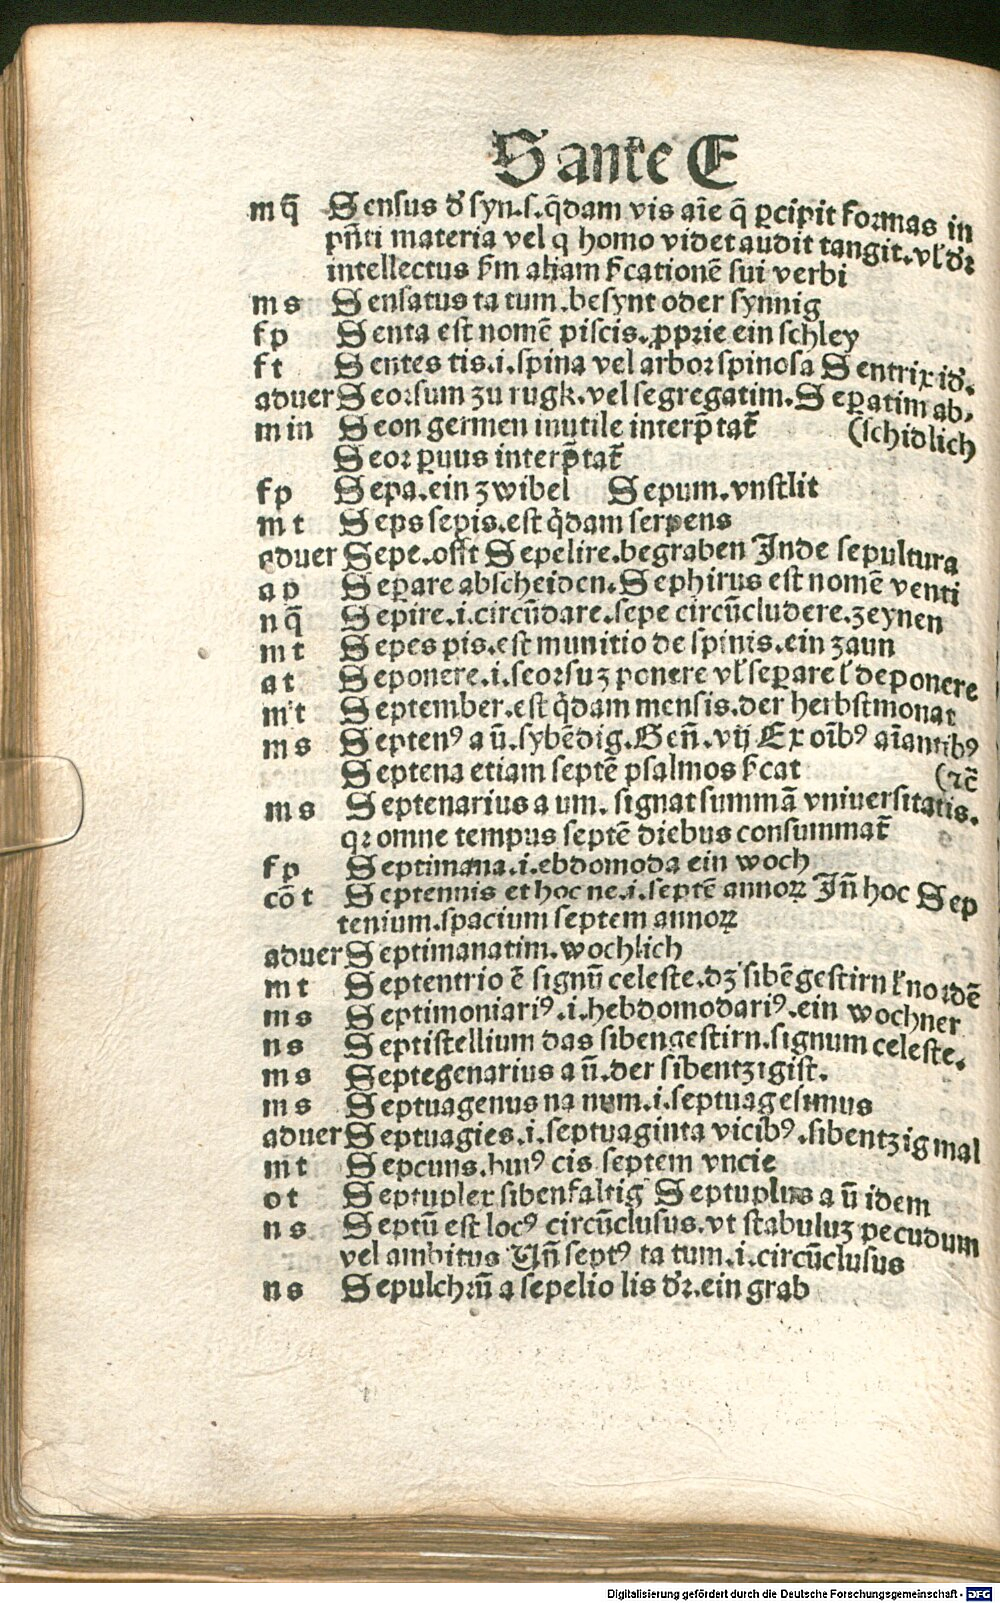 S ante E
m q̄ Sensus đ syn.s.q̄dam vis aīe q̄ ꝑcipit formas in
pn̄ti materia vel q homo videt audit tangit.vl' dr̄
intellectus s̄m aliam s̄cationē sui verbi
m s Sensatus ta tum.besynt oder synnig
f p Senta est nomē piscis.ꝓprie ein schley
f t Sentes tis.i.spina vel arbor spinosa Sentrix id̄.
aduer Seorsum zu rugk.vel segregatim.Seꝑatim ab,
m in Seon germen inutile interp̄tat̄ (schidlich
Seor ꝑuus interp̄tat̄
f p Sepa.ein zwibel Sepum.vnstlit
m t Seps sepis.est q̄dam serpens
aduer Sepe.offt Sepelire.begraben Inde sepultura
a p Seꝑare abscheiden.Sephirus est nomē venti
n q̄ Sepire.i.circūdare.sepe circūcludere.zeynen
m t Sepes pis.est munitio de spinis.ein zaun
a t Seponere.i.seorsuʒ ponere vl' seꝑare l' deponere
m t September.est q̄dam mensis.der herbstmonat
m s Septenꝰ a ū.sybēdig.Gen̄.vij Ex oībꝰ aīantibꝰ
Septena etiam septē psalmos s̄cat (ꝛc̄
m s Septenarius a um. signat summā vniuersitatis.
qꝛ omne tempus septē diebus consummat̄
f p Septimana.i.ebdomoda ein woch
cō t Septennis et hoc ne.i.septē annoꝝ In̄ hoc Sep
tenium.spacium septem annoꝝ
aduer Septimanatim.wochlich
m t Septentrio ē signū celeste.dʒ sibēgestirn l' nordē
m s Septimoniariꝰ.i.hebdomodariꝰ.ein wochner
n s Septistellium das sibengestirn.signum celeste.
m s Septegenarius a ū.der sibentzigist.
m s Septuagenus na num.i.septuagesimus
aduer Septuagies.i.septuaginta vicibꝰ.sibentzig mal
m t Sepcuns.huiꝰ cis septem vncie
o t Septuplex sibenfaltig Septuplus a ū idem
n s Septū est locꝰ circūclusus.vt stabuluʒ pecudum
vel ambitus Un̄ septꝰ ta tum.i.circūclusus
n s Sepulchrū a sepelio lis dr̄.ein grab
Digitalisierung gefördert durch die Deutsche Forschungsgemeinschaft - DFG